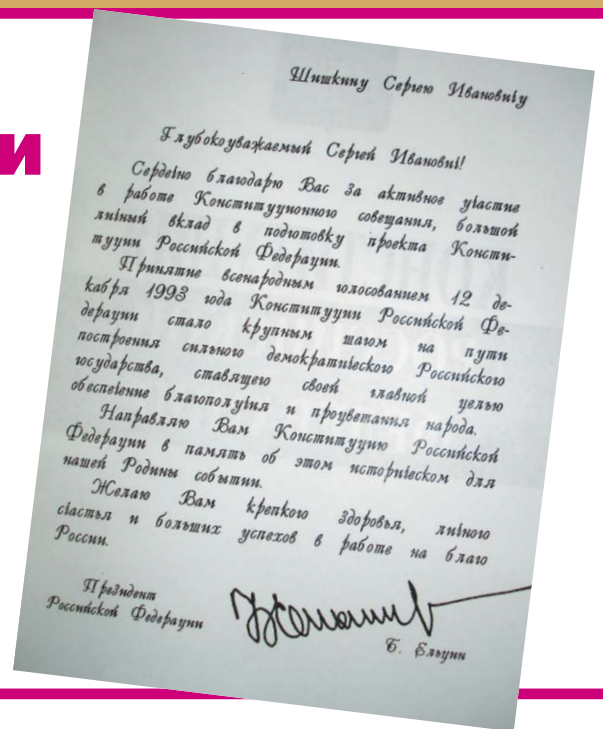 и
Шишкину Сергею Ивановичу
Глубокоуважаемый Сергей Иванович!
Сердечно благодарю Вас за активное участие
в работе Конституционного совещания, большой
личный вклад в подготовку проекта Консти-
туции Российской Федерации.
Принятие всенародным голосованием 12 де-
кабря 1993 года Конституции Российской Фе-
дерации стало крупным шагом на пути
построения сильного демократического Российского
государства, ставящего своей главной целью
обеспечение благополучия и процветания народа.
Направляю Вам Конституцию Российской
Федерации в память об этом историческом для
нашей Родины событии.
Желаю Вам крепкого здоровья, личного
счастья и больших успехов в работе на благо
России.
Президент
Российской Федерации
Б. Ельцин